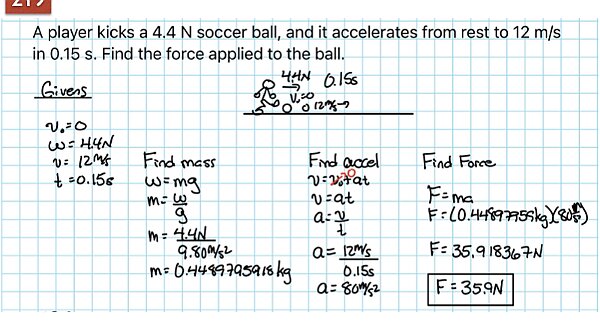 219
A player kicks a 4.4 N soccer ball, and it accelerates from rest to 12 m/s
in 0.15 s. Find the force applied to the ball.
Givens
v₀=0
w=4.4N
v=12m/s
t=0.15s
4.4N 0.15s
v₀=0
12m/s→
Find mass
w=mg
m=w/g
m=4.4N/9.80m/s²
m=0.4489795918kg
Find accel
v=v₀+at
v=at
a=v/t
a=12m/s/0.15s
a=80m/s²
Find Force
F=ma
F=(0.44897959kg)(80m/s²)
F=35.918367N
F=35.9N